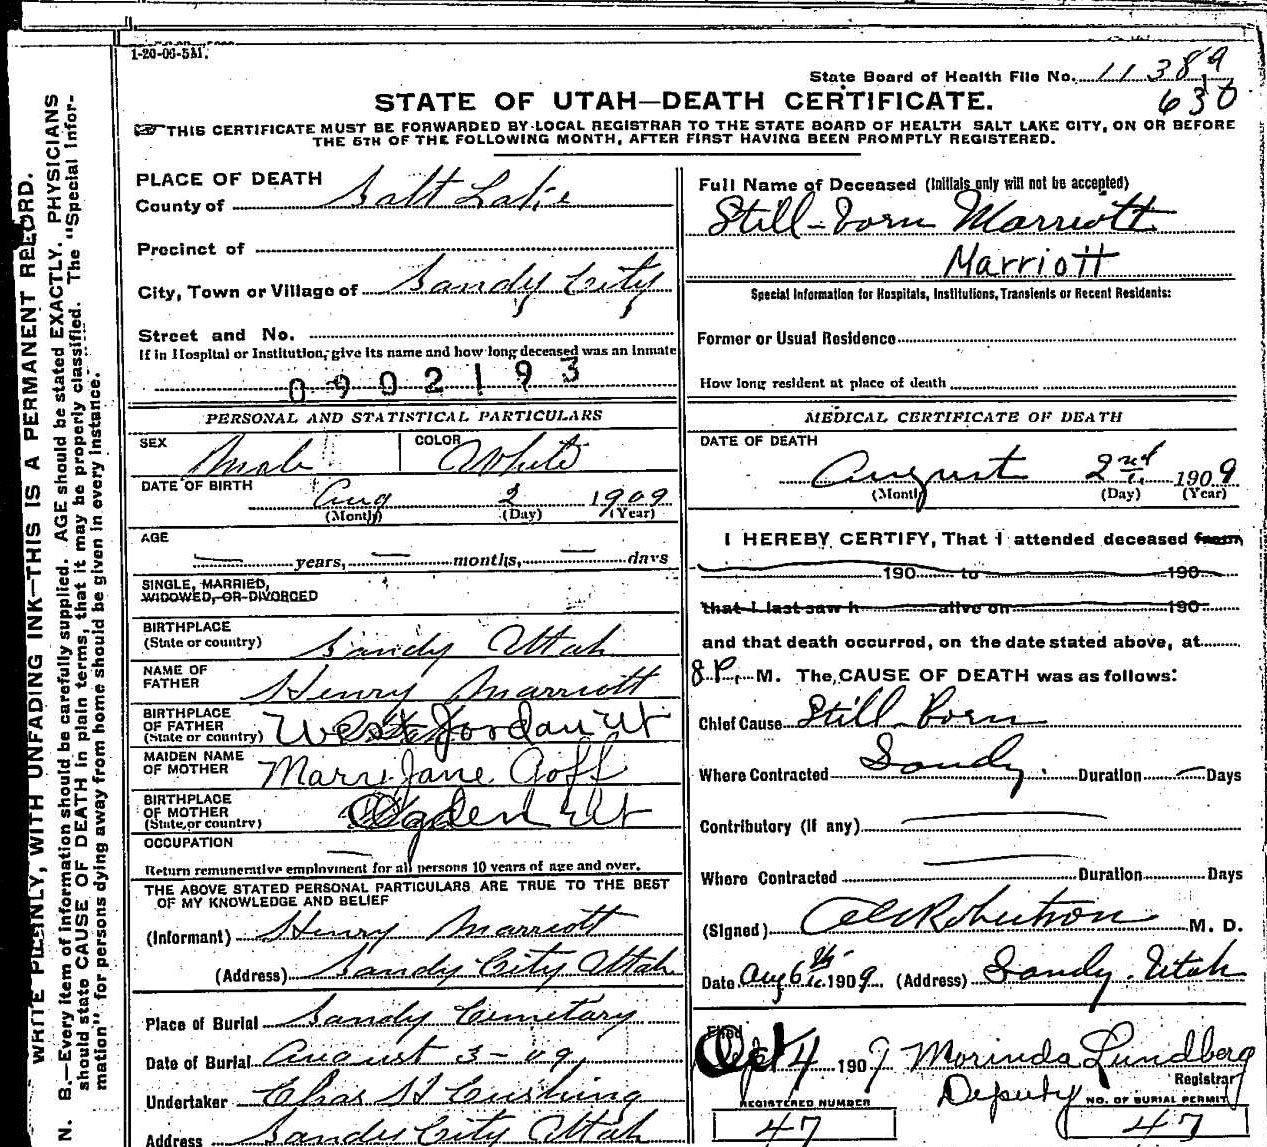 1-20-06-5M.
State Board of Health File No. 11389
630
STATE OF UTAH—DEATH CERTIFICATE.
THIS CERTIFICATE MUST BE FORWARDED BY LOCAL REGISTRAR TO THE STATE BOARD OF HEALTH SALT LAKE CITY, ON OR BEFORE
THE 5TH OF THE FOLLOWING MONTH, AFTER FIRST HAVING BEEN PROMPTLY REGISTERED.
WRITE PLAINLY, WITH UNFADING INK—THIS IS A PERMANENT RECORD.
N. B.—Every item of information should be carefully supplied. AGE should be stated EXACTLY. PHYSICIANS
should state CAUSE OF DEATH in plain terms, that it may be properly classified. The "Special Infor-
mation" for persons dying away from home should be given in every instance.
PLACE OF DEATH
County of Salt Lake
Precinct of
City, Town or Village of Sandy City
Street and No.
If in Hospital or Institution, give its name and how long deceased was an inmate
0902193
PERSONAL AND STATISTICAL PARTICULARS
SEX Male COLOR White
DATE OF BIRTH Aug 2 1909
(Month) (Day) (Year)
AGE
— years, — months, — days
SINGLE, MARRIED,
WIDOWED, OR DIVORCED
BIRTHPLACE
(State or country) Sandy Utah
NAME OF
FATHER Henry Marriott
BIRTHPLACE
OF FATHER
(State or country) West Jordan Ut
MAIDEN NAME
OF MOTHER Mary Jane Goff
BIRTHPLACE
OF MOTHER
(State or country) Ogden Ut
OCCUPATION —
Return remunerative employment for all persons 10 years of age and over.
THE ABOVE STATED PERSONAL PARTICULARS ARE TRUE TO THE BEST
OF MY KNOWLEDGE AND BELIEF
(Informant) Henry Marriott
(Address) Sandy City Utah
Place of Burial Sandy Cemetary
Date of Burial August 3-09
Undertaker Chas H Cushing
Address Sandy City Utah
Full Name of Deceased (Initials only will not be accepted)
Still-born Marriott
Marriott
Special Information for Hospitals, Institutions, Transients or Recent Residents:
Former or Usual Residence
How long resident at place of death
MEDICAL CERTIFICATE OF DEATH
DATE OF DEATH
August 2nd 1909
(Month) (Day) (Year)
I HEREBY CERTIFY, That I attended deceased from
190 to 190
that I last saw h alive on 190
and that death occurred, on the date stated above, at
8 P. M. The CAUSE OF DEATH was as follows:
Chief Cause Still Born
Where Contracted Sandy. Duration — Days
Contributory (if any) —
Where Contracted — Duration Days
(Signed) Robertson M. D.
Date Aug 6th 1909 (Address) Sandy Utah
Filed
4 1909 Morinda Lundberg
Registrar
Deputy
REGISTERED NUMBER
47
NO. OF BURIAL PERMIT
47